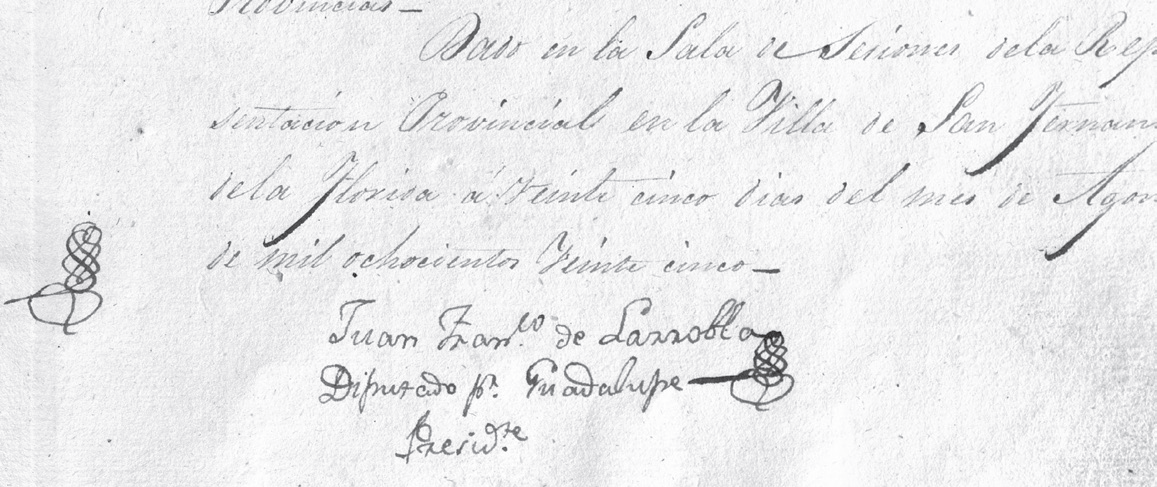 Provincias_
Dado en la Sala de Sesiones dela Rep
sentacion Provincial en la Villa de San Fernan
dela Florida á Veinte cinco dias del mes de Agos
de mil ochocientos Veinte cinco_
Juan Fran.co de Larrobla
Diputado p.r Guadalupe
Presid.te